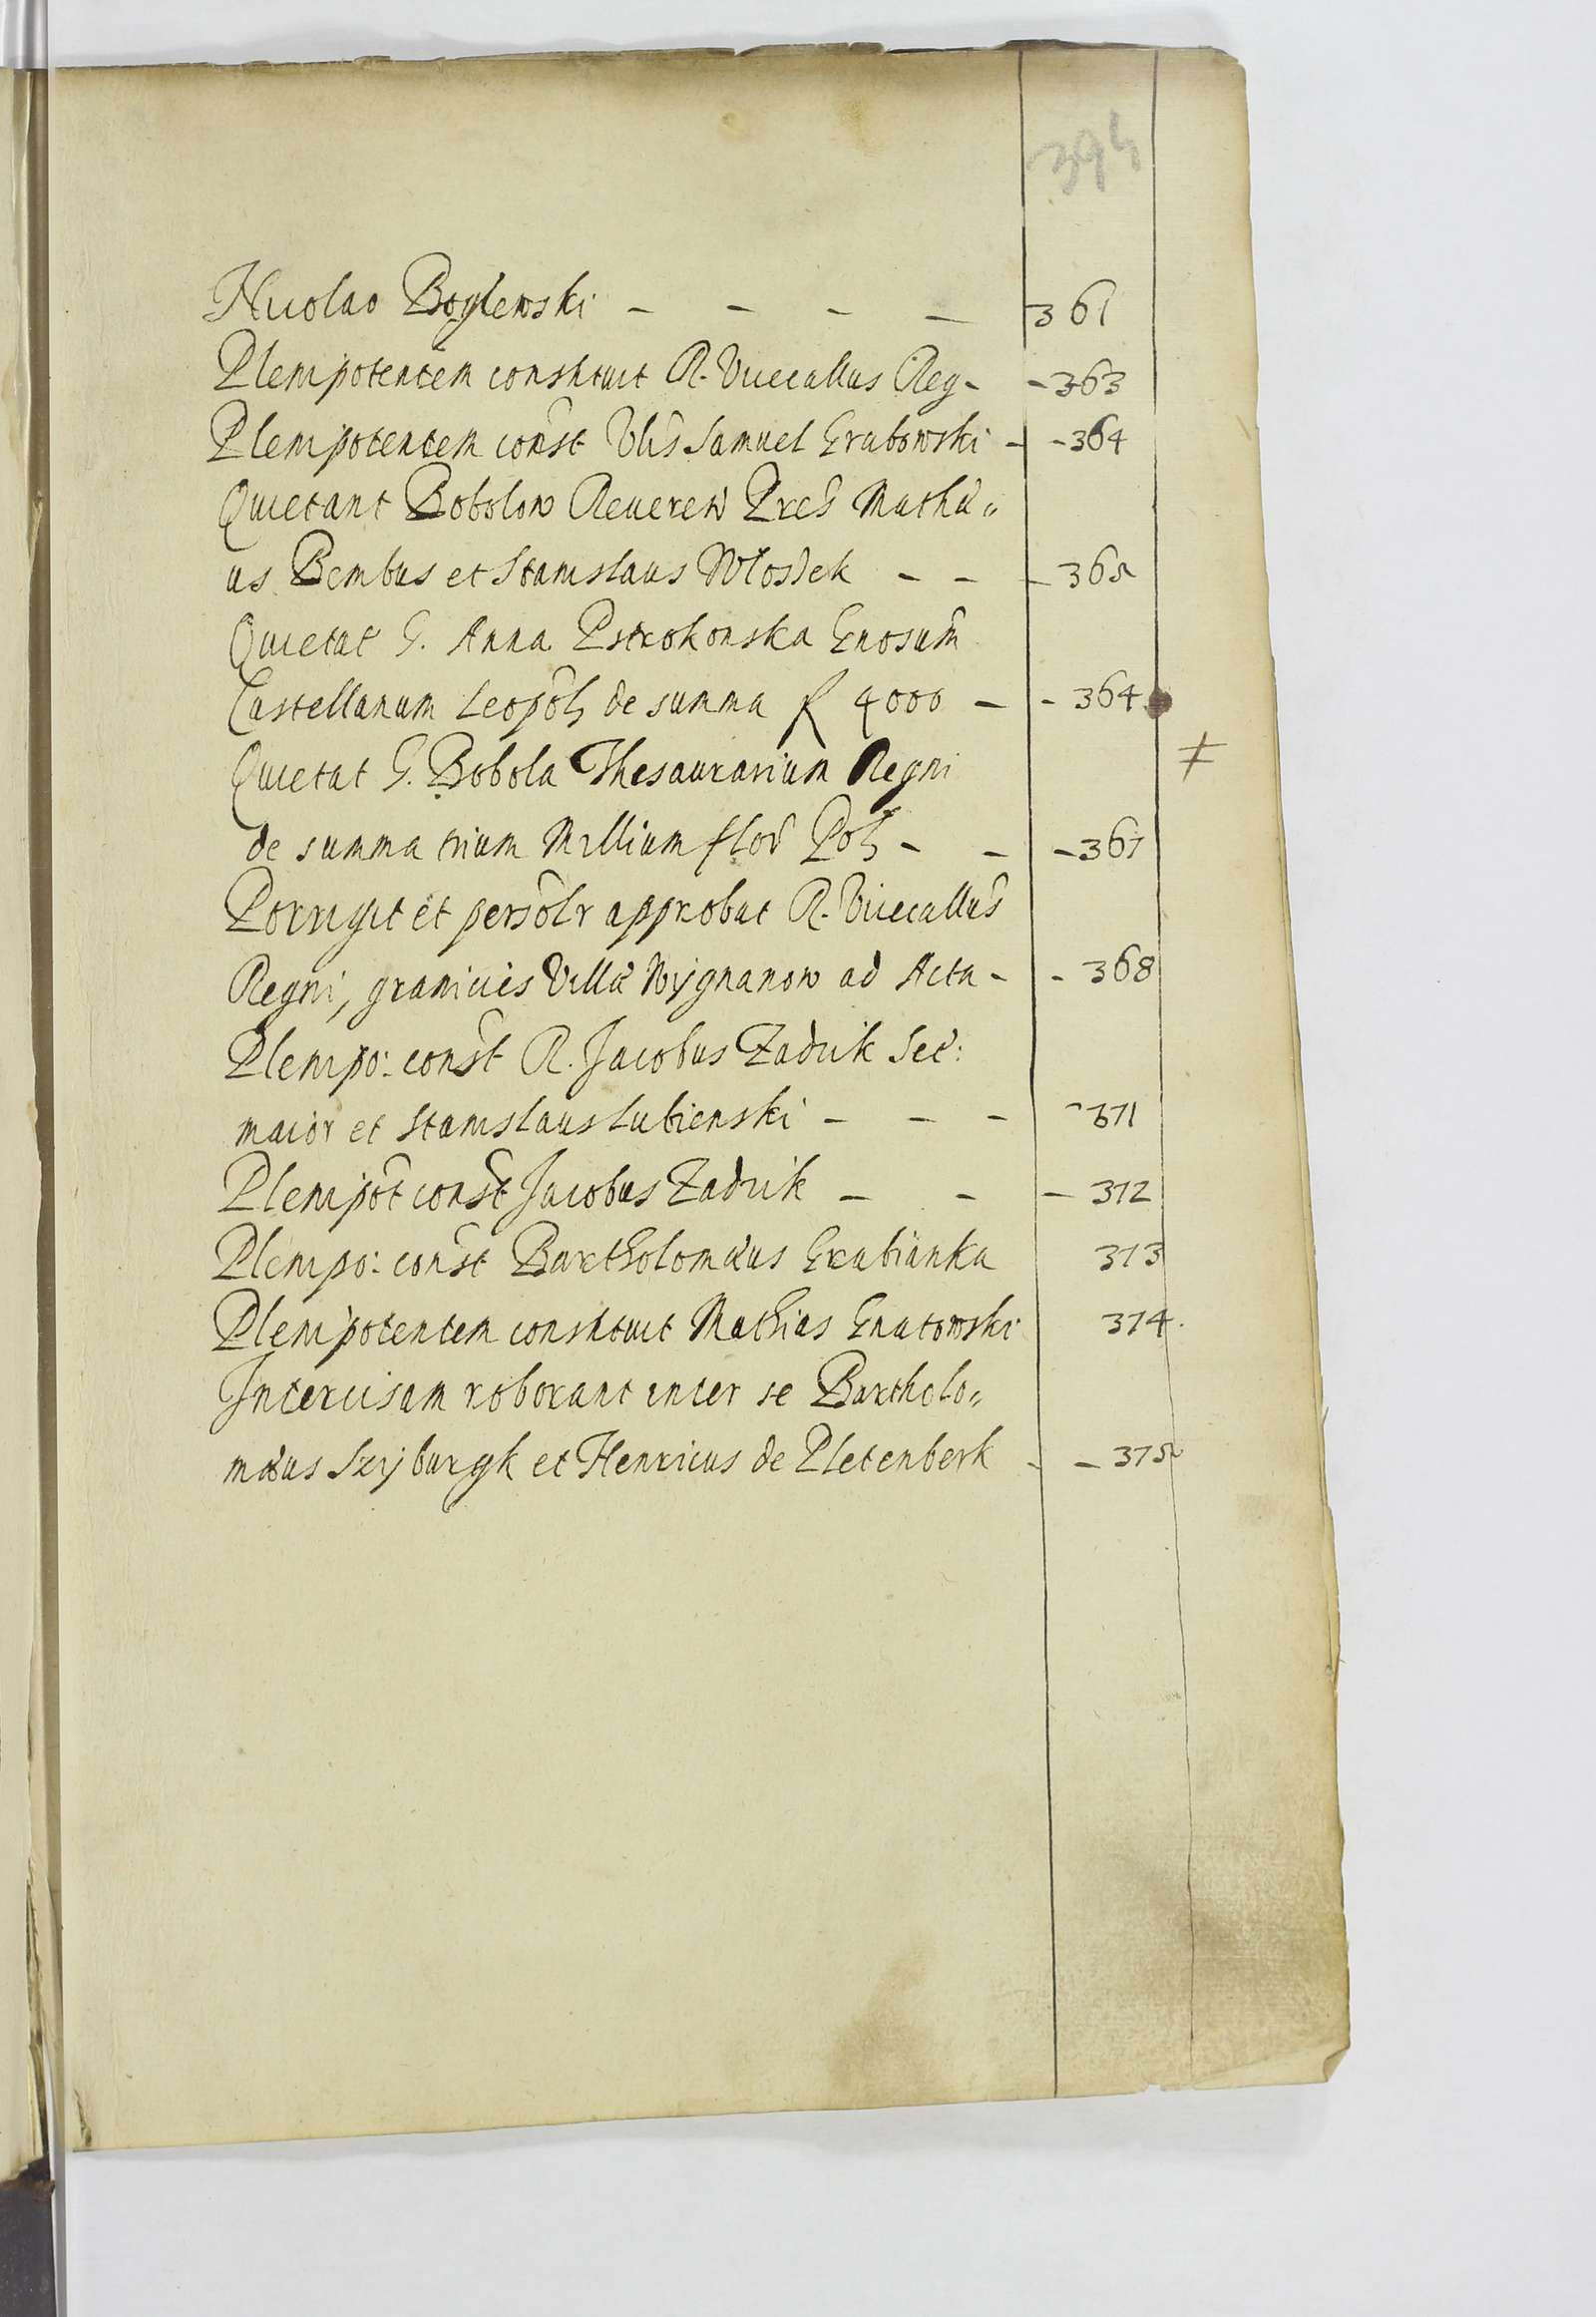 394
Nicolao Boglewski - - - - 361
Plenipotentem constituit R. Vicecallus Reg - - 363
Plenipotentem const Vlis Samuel Grabowski - - 364
Quietant Bobolow Reueren Pres Mathæ„
us Bembus et Stanislaus Wlosdek - - - 365
Quietat G. Anna Pstrokonska Gnosum
Castellanum Leopol de summa f 4000 - - 364
Quietat G. Bobola Thesaurarium Regni ≠
de summa trium Millium flor Pol - - - 367
Porrigit et persolr approbat R. Vicecallus
Regni, granicies Villæ Wygnanow ad Acta - - 368
Plenipo: const R. Jacobus Zadzik Sec:
maior et Stanislaus Lubienski - - - 371
Plenipot const Jacobus Zadzik - - - 372
Plenipo: const Bartholomæus Grabianka 373
Plenipotentem constituit Mathias Gnatowski 374.
Intercisam roborant inter se Bartholo„
mæus Szyburgk et Henricus de Pletenberk - - 375